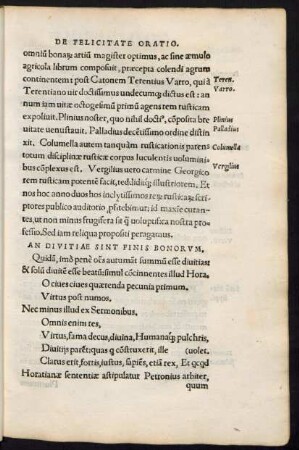 DE FELICITATE ORATIO.
omniũ bonaꝝ artiũ magister optimus, ac sine æmulo
agricola librum composuit, præcepta colendi agrum
continentem: post Catonem Terentius Varro, qui à
Teren.
Varro.
Terentiano uit doctissimus undecumꝗ; dictus est: an
num iam uitæ octogesimũ primũ agens rem rusticam
expoliuit. Plinius noster, quo nihil docti⁹, cõposita bre
Plinius
uitate uenustauit. Palladius decẽtissimo ordine distin
Palladius
xit. Columella autem tanquàm rusticationis parens
Columella
totum disciplinæ rusticæ corpus luculentis uolumini-
bus cõplexus est. Vergilius uero carmine Georgico
Vergilius
rem rusticam potentẽ facit, reddidisꝗ; illustriorem. Et
nos hoc anno duos hos inclytissimos reꝝ rusticaꝝ scri
ptores publico auditorio, ꝓfitebimur: id maxĩe curan-
tes, ut non minus frugifera sit ꝗ̃ uolupifica nostra pro
fessio. Sed iam reliqua propositi peragamus.
AN DIVITIAE SINT FINIS BONORVM.
Quidã, imò penè oẽs autumãt summũ esse diuitias:
& solũ diuitẽ esse beatissimũ cõcinentes illud Hora.
O ciues ciues quærenda pecunia primum.
Virtus post numos.
Nec minus illud ex Sermonibus,
Omnis enim res,
Virtus, fama decus, diuina, Humanaꝗ; pulchris,
Diuitijs parẽt: quas ꝗ cõstruxerit, ille
(uolet.
Clarus erit, fortis, iustus, sapiẽs, etiã rex, Et ꝗcꝗd
Horatianæ sententiæ astipulatur Petronius arbiter,
quum